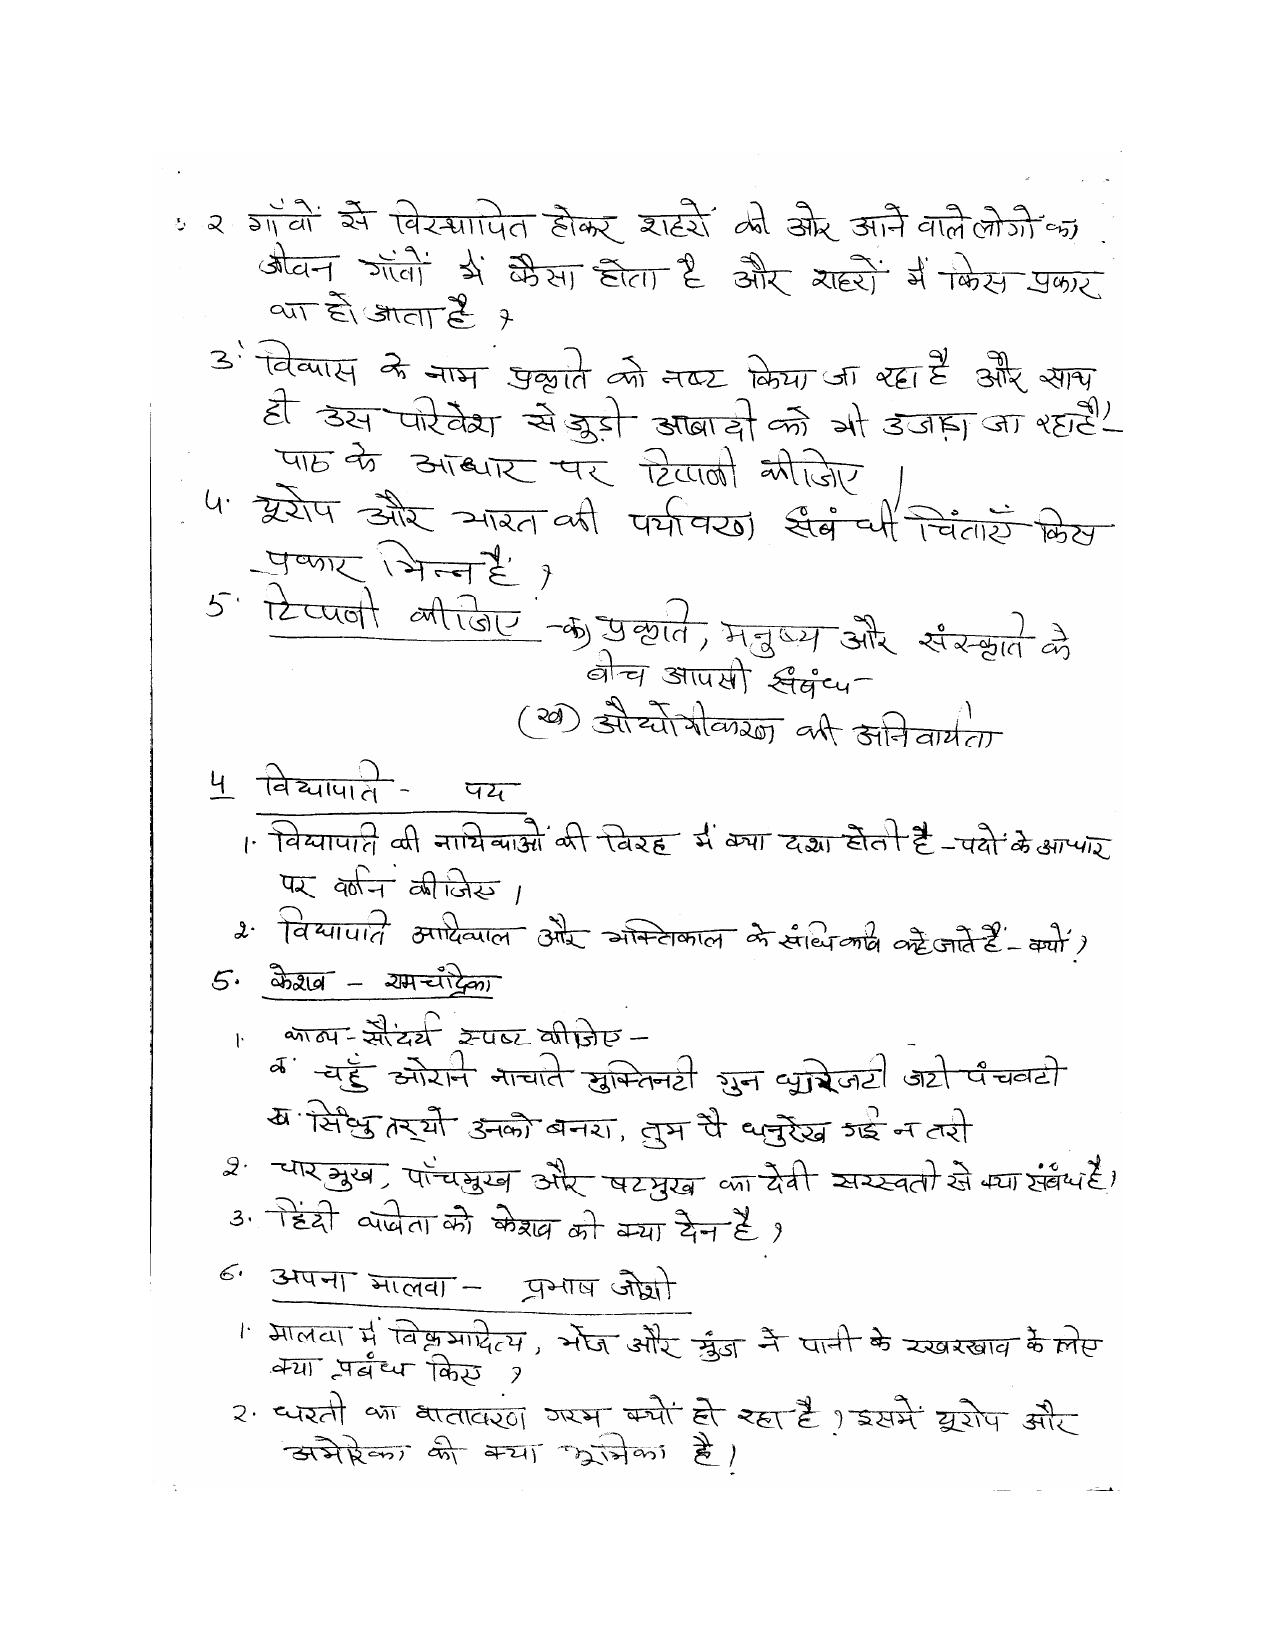 २ गाँवों से विस्थापित होकर शहरों की ओर आने वाले लोगों का
जीवन गाँवों में कैसा होता है और शहरों में किस प्रकार
का हो जाता है ?
3. विकास के नाम प्रकृति को नष्ट किया जा रहा है और साथ
ही उस परिवेश से जुड़ी आबादी को भी उजाड़ा जा रहा है। –
पाठ के आधार पर टिप्पणी कीजिए ।
४. यूरोप और भारत की पर्यावरण संबंधी चिंताएँ किस
प्रकार भिन्न हैं ?
5. टिप्पणी कीजिए – क) प्रकृति, मनुष्य और संस्कृति के
बीच आपसी संबंध –
(ख) औद्योगीकरण की अनिवार्यता
५ विद्यापति – पद
1. विद्यापति की नायिकाओं की विरह में क्या दशा होती है – पदों के आधार
पर वर्णन कीजिए ।
2. विद्यापति आदिकाल और भक्तिकाल के संधि कवि कहे जाते हैं – क्यों ?
5. केशव – रामचंद्रिका
1. काव्य-सौंदर्य स्पष्ट कीजिए –
क. चहुँ ओरनि नाचति मुक्तिनटी गुन धूरिजटी जटी पंचवटी
ख. सिंधु तर्‌यो उनको बनरा, तुम पै धनुरेख गई न तरी
2. चारमुख, पाँचमुख और षटमुख का देवी सरस्वती से क्या संबंध है ?
3. हिंदी कविता को केशव की क्या देन है ?
6. अपना मालवा – प्रभाष जोशी
1. मालवा में विक्रमादित्य, भोज और मुंज ने पानी के रखरखाव के लिए
क्या प्रबंध किए ?
२. धरती का वातावरण गरम क्यों हो रहा है ? इसमें यूरोप और
अमेरिका की क्या भूमिका है ?